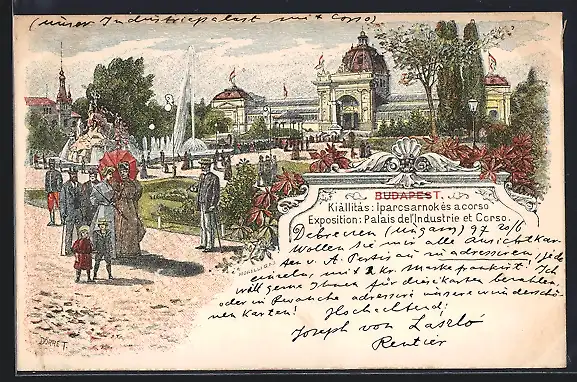 (unser Industriepalast mit Corso)
BUDAPEST.
Kiállitás: Iparcsarnok és a corso
Exposition: Palais del'Industrie et Corso.
Debreczen (Ungarn) 97 20/6
Wollen Sie mir alle Ansichtkar-
ten v. A. zu adressieren, jede
einzeln, mit 2 kr. Marke frankirt! Ich
will gerne Ihnen für diese Karten bezahlen,
oder in Revanche adressire unsere wunderschö-
nen Karten! Hochachtend:
Joseph von László
Rentier
DÖRRE T.